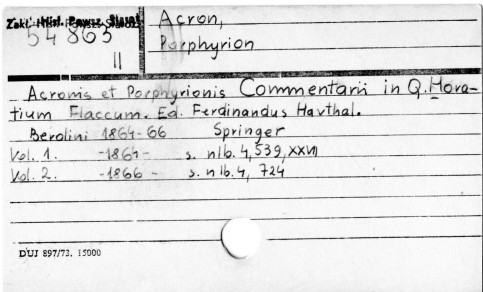 Zakł. Hist. Powsz. Staroż.
54 863
II
Acron,
Porphyrion
Acronis et Porphyrionis Commentarii in Q. Hora-
tium Flaccum. Ed. Ferdinandus Havthal.
Berolini 1864-66 Springer
Vol. 1. -1864- s. nlb. 4, 539, XXVI
Vol. 2. -1866- s. nlb. 4, 724
DUJ 897/73. 15000